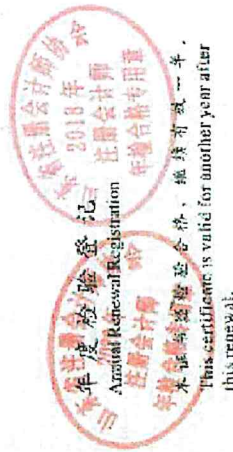 年度检验登记
Annual Renewal Registration
本证书经检验合格，继续有效一年。
This certificate is valid for another year after
this renewal.
省注册会计师协会
2018年
注册会计师
年检合格专用章
山东省注册会计师协会
注册会计师